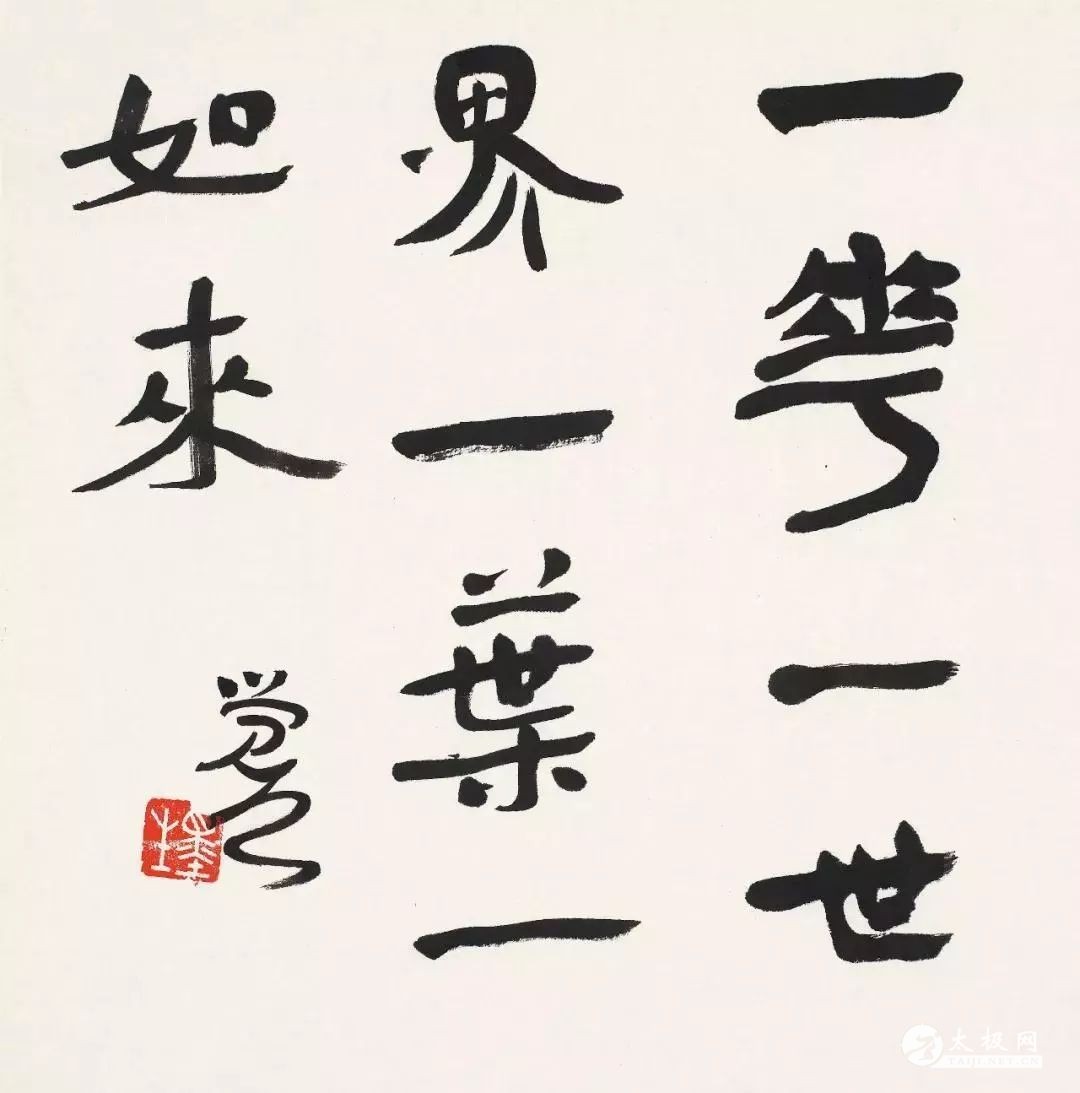 一華一世
界一葉一
如來
太极网
TAIJI.NET.CN